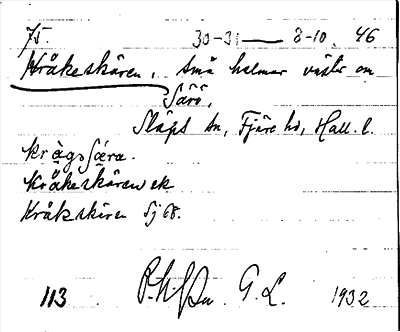 75 30-31 — 8-10. 46
Kråkeskären, små holmar väster om
Särö,
Släps sn, Fjäre hd, Hall. l.
Kråkeskären ek
Kråkskären Sj 68.
113 G. L. 1932